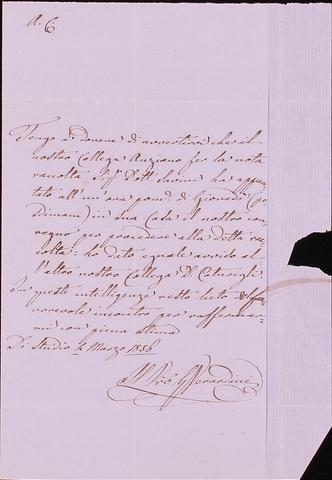 A. C.
Tengo a dovere di avvertire che il
nostro Collega Anziano per la nota
raccolta Sigr. Dott. ha appun-
tato all'un'ora pomd. di Giovedì (po
dimani) in sua Casa il nostro con-
vegno per procedere alla detta rac-
colta: ho dato eguale avviso al-
l'altro nostro Collega Dr.
In queste intelligenze resto lieto del fa-
vorevole incontro per raffermar-
mi con piena stima
Di Studio 4 Marzo 1856